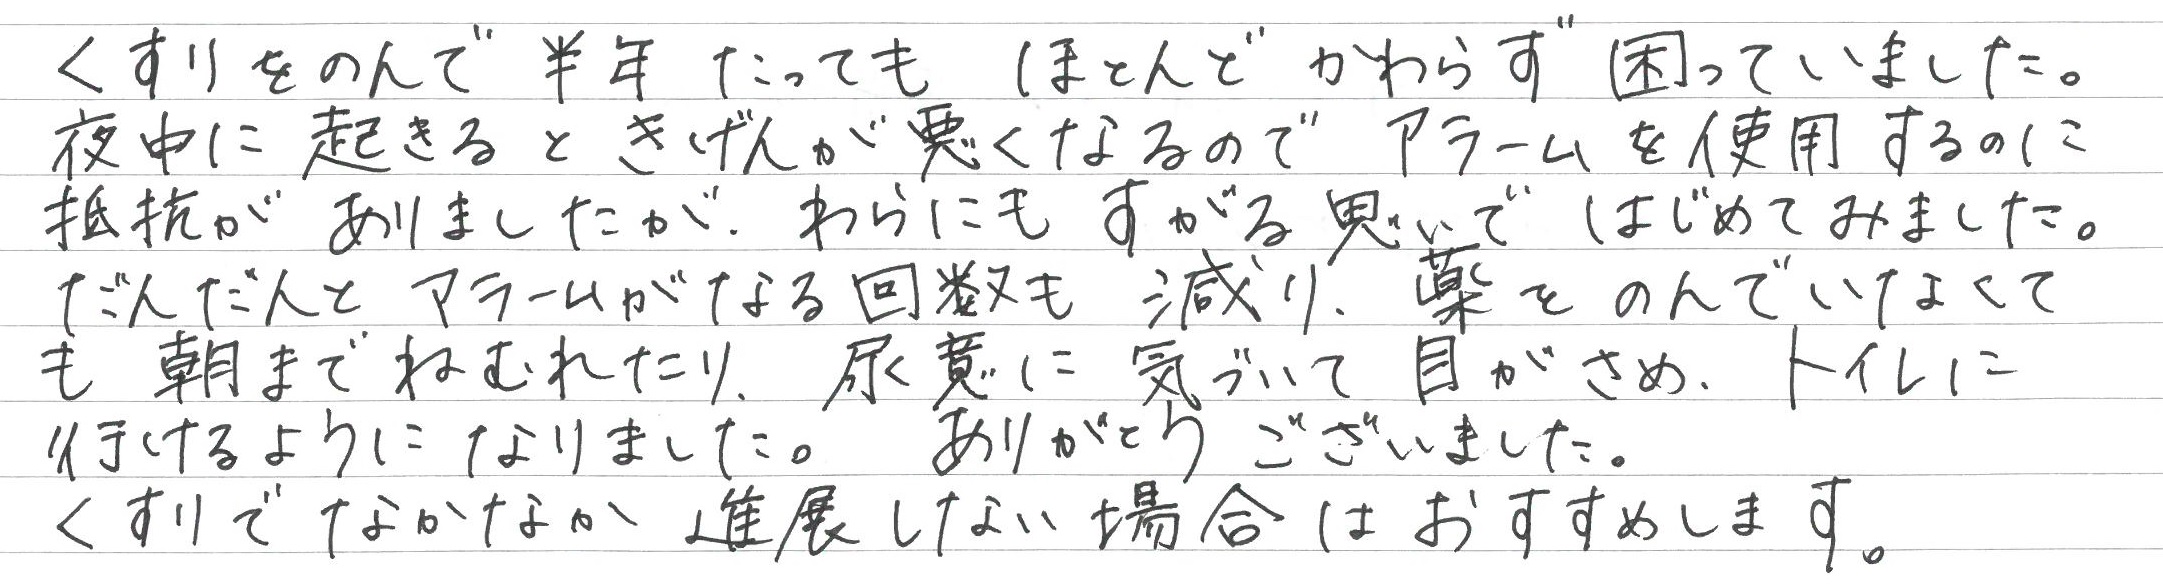 くすりをのんで半年たっても ほとんどかわらず困っていました。
夜中に起きるときげんが悪くなるので アラームを使用するのに
抵抗がありましたが、わらにもすがる思いではじめてみました。
だんだんとアラームがなる回数も減り、薬をのんでいなくて
も朝までねむれたり、尿意に気づいて目がさめ、トイレに
行けるようになりました。 ありがとうございました。
くすりでなかなか進展しない場合はおすすめします。